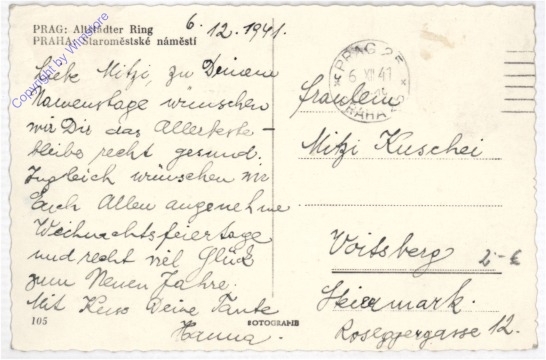 PRAG: Altstädter Ring
PRAHA: Staroměstské náměstí
6. 12. 1941.
Liebe Mitzi, zu Deinem
Namenstage wünschen
wir Dir das Allerbeste –
bleibe recht gesund.
Zugleich wünschen wir
Euch Allen angenehme
Weihnachtsfeiertage
und recht viel Glück
zum Neuen Jahre.
Mit Kuss Deine Tante
Hanna.
105
FOTOGRAFIE
PRAG 25
6 XII 41
PRAHA 25
Fräulein
Mitzi Kuschei
Voitsberg
2.- €
Steiermark.
Roseggergasse 12.
Copyright by Winstore